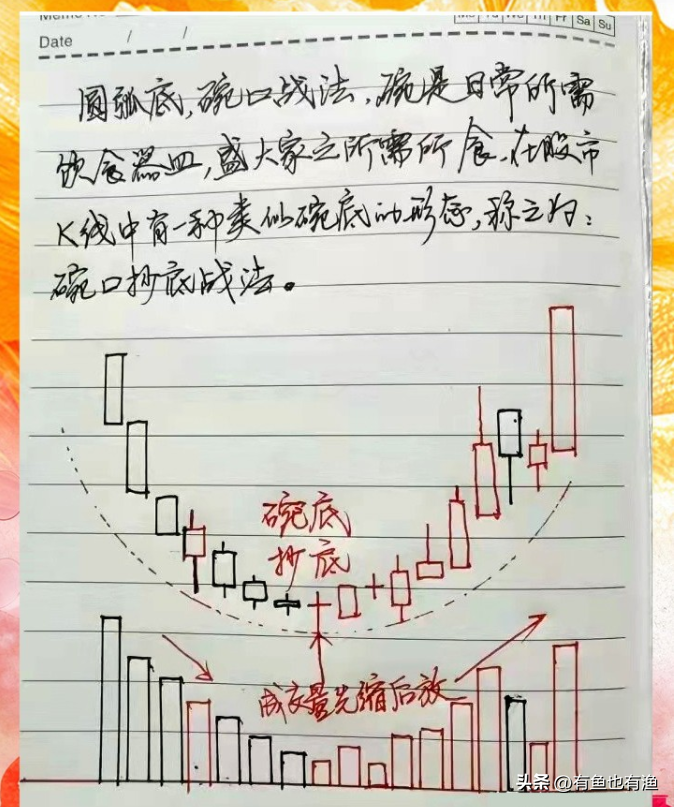 Date / /
Mo Tu We Th Fr Sa Su
圆弧底,碗口战法,碗是日常所需
饮食器皿,盛大家之所需所食、在股市
K线中有一种类似碗底的形态,称之为:
碗口抄底战法。
碗底
抄底
成交量先缩后放
头条 @有鱼也有渔